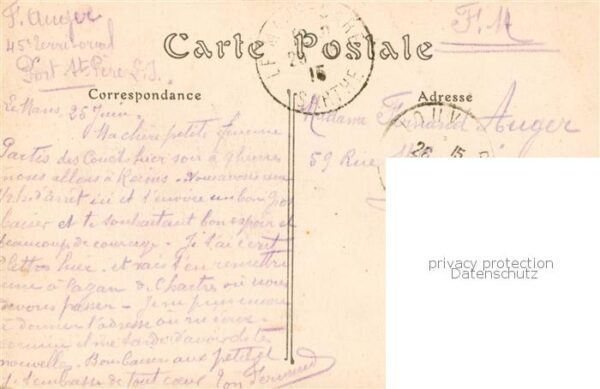 F. Auger
45e Territorial
Port St Père L.I.
F.M
Carte Postale
Correspondance
Adresse
LE MANS
15
SARTHE
Madame Fernand Auger
59 Rue
26 15
Le Mans, 25 Juin.
Ma chère petite femme
Partis des hier soir à 9 heures
nous allons à Reims. Nous avons un
d'arrêt ici et t'envoie un bon gros
baiser et te souhaitant bon espoir et
beaucoup de courage. Je t'ai écrit
lettre hier et vais t'en remettre
une à la gare de Chartres où nous
devons passer. Je ne puis
à donner l'adresse où m'écrire.
d'avoir de tes
nouvelles. Bons baisers aux petits et
je t'embrasse de tout cœur Ton Fernand
privacy protection
Datenschutz